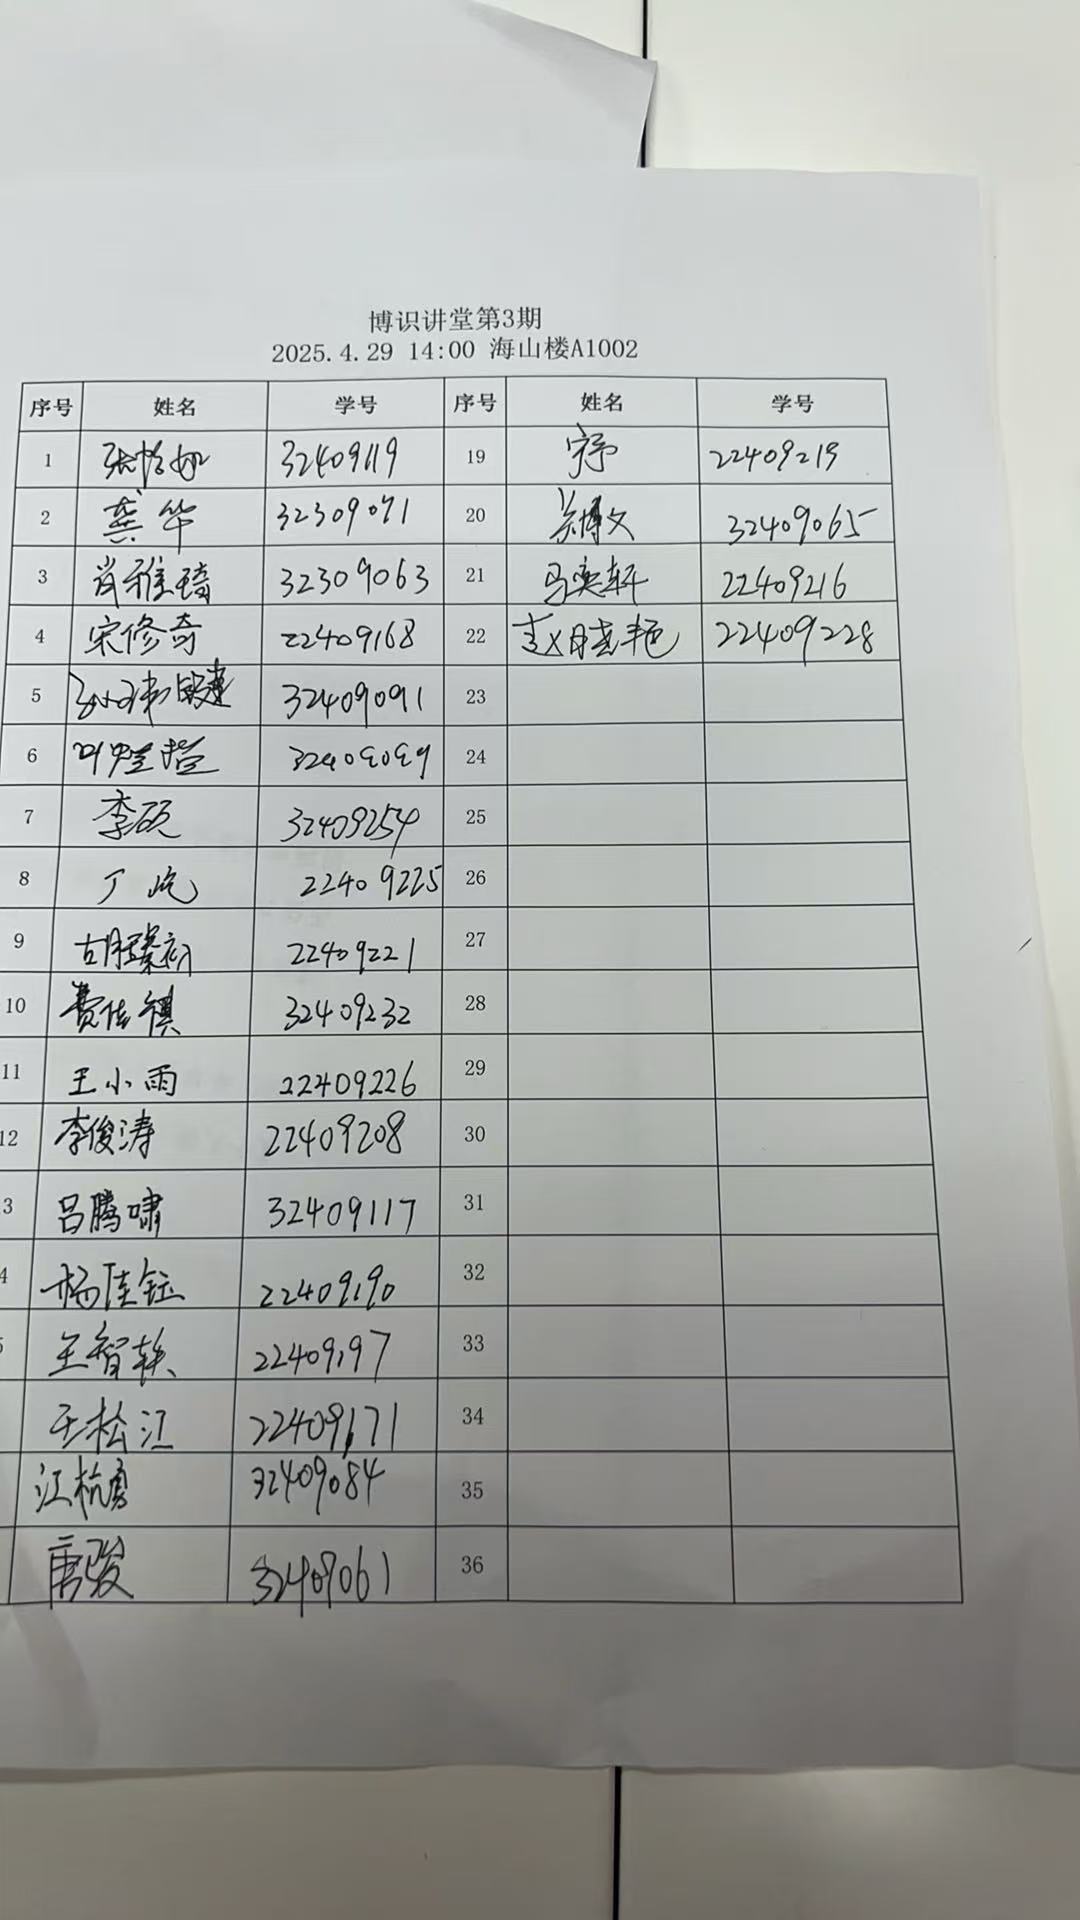 博识讲堂第3期
2025.4.29 14:00 海山楼A1002
序号 姓名 学号 序号 姓名 学号
1 张怡 32409119 19 22409219
2 龚华 32309071 20 博文 32409065
3 肖雅琦 32309063 21 马奕轩 22409216
4 宋修奇 22409168 22 赵晓艳 22409228
5 32409091 23
6 叶 32409099 24
7 李硕 32409254 25
8 丁屹 22409225 26
9 胡臻 22409221 27
10 费佳祺 32409232 28
11 王小雨 22409226 29
12 李俊涛 22409208 30
3 吕腾啸 32409117 31
4 杨佳钰 22409190 32
王智轶 22409197 33
王松江 22409171 34
江杭勇 32409084 35
唐骏 32409061 36